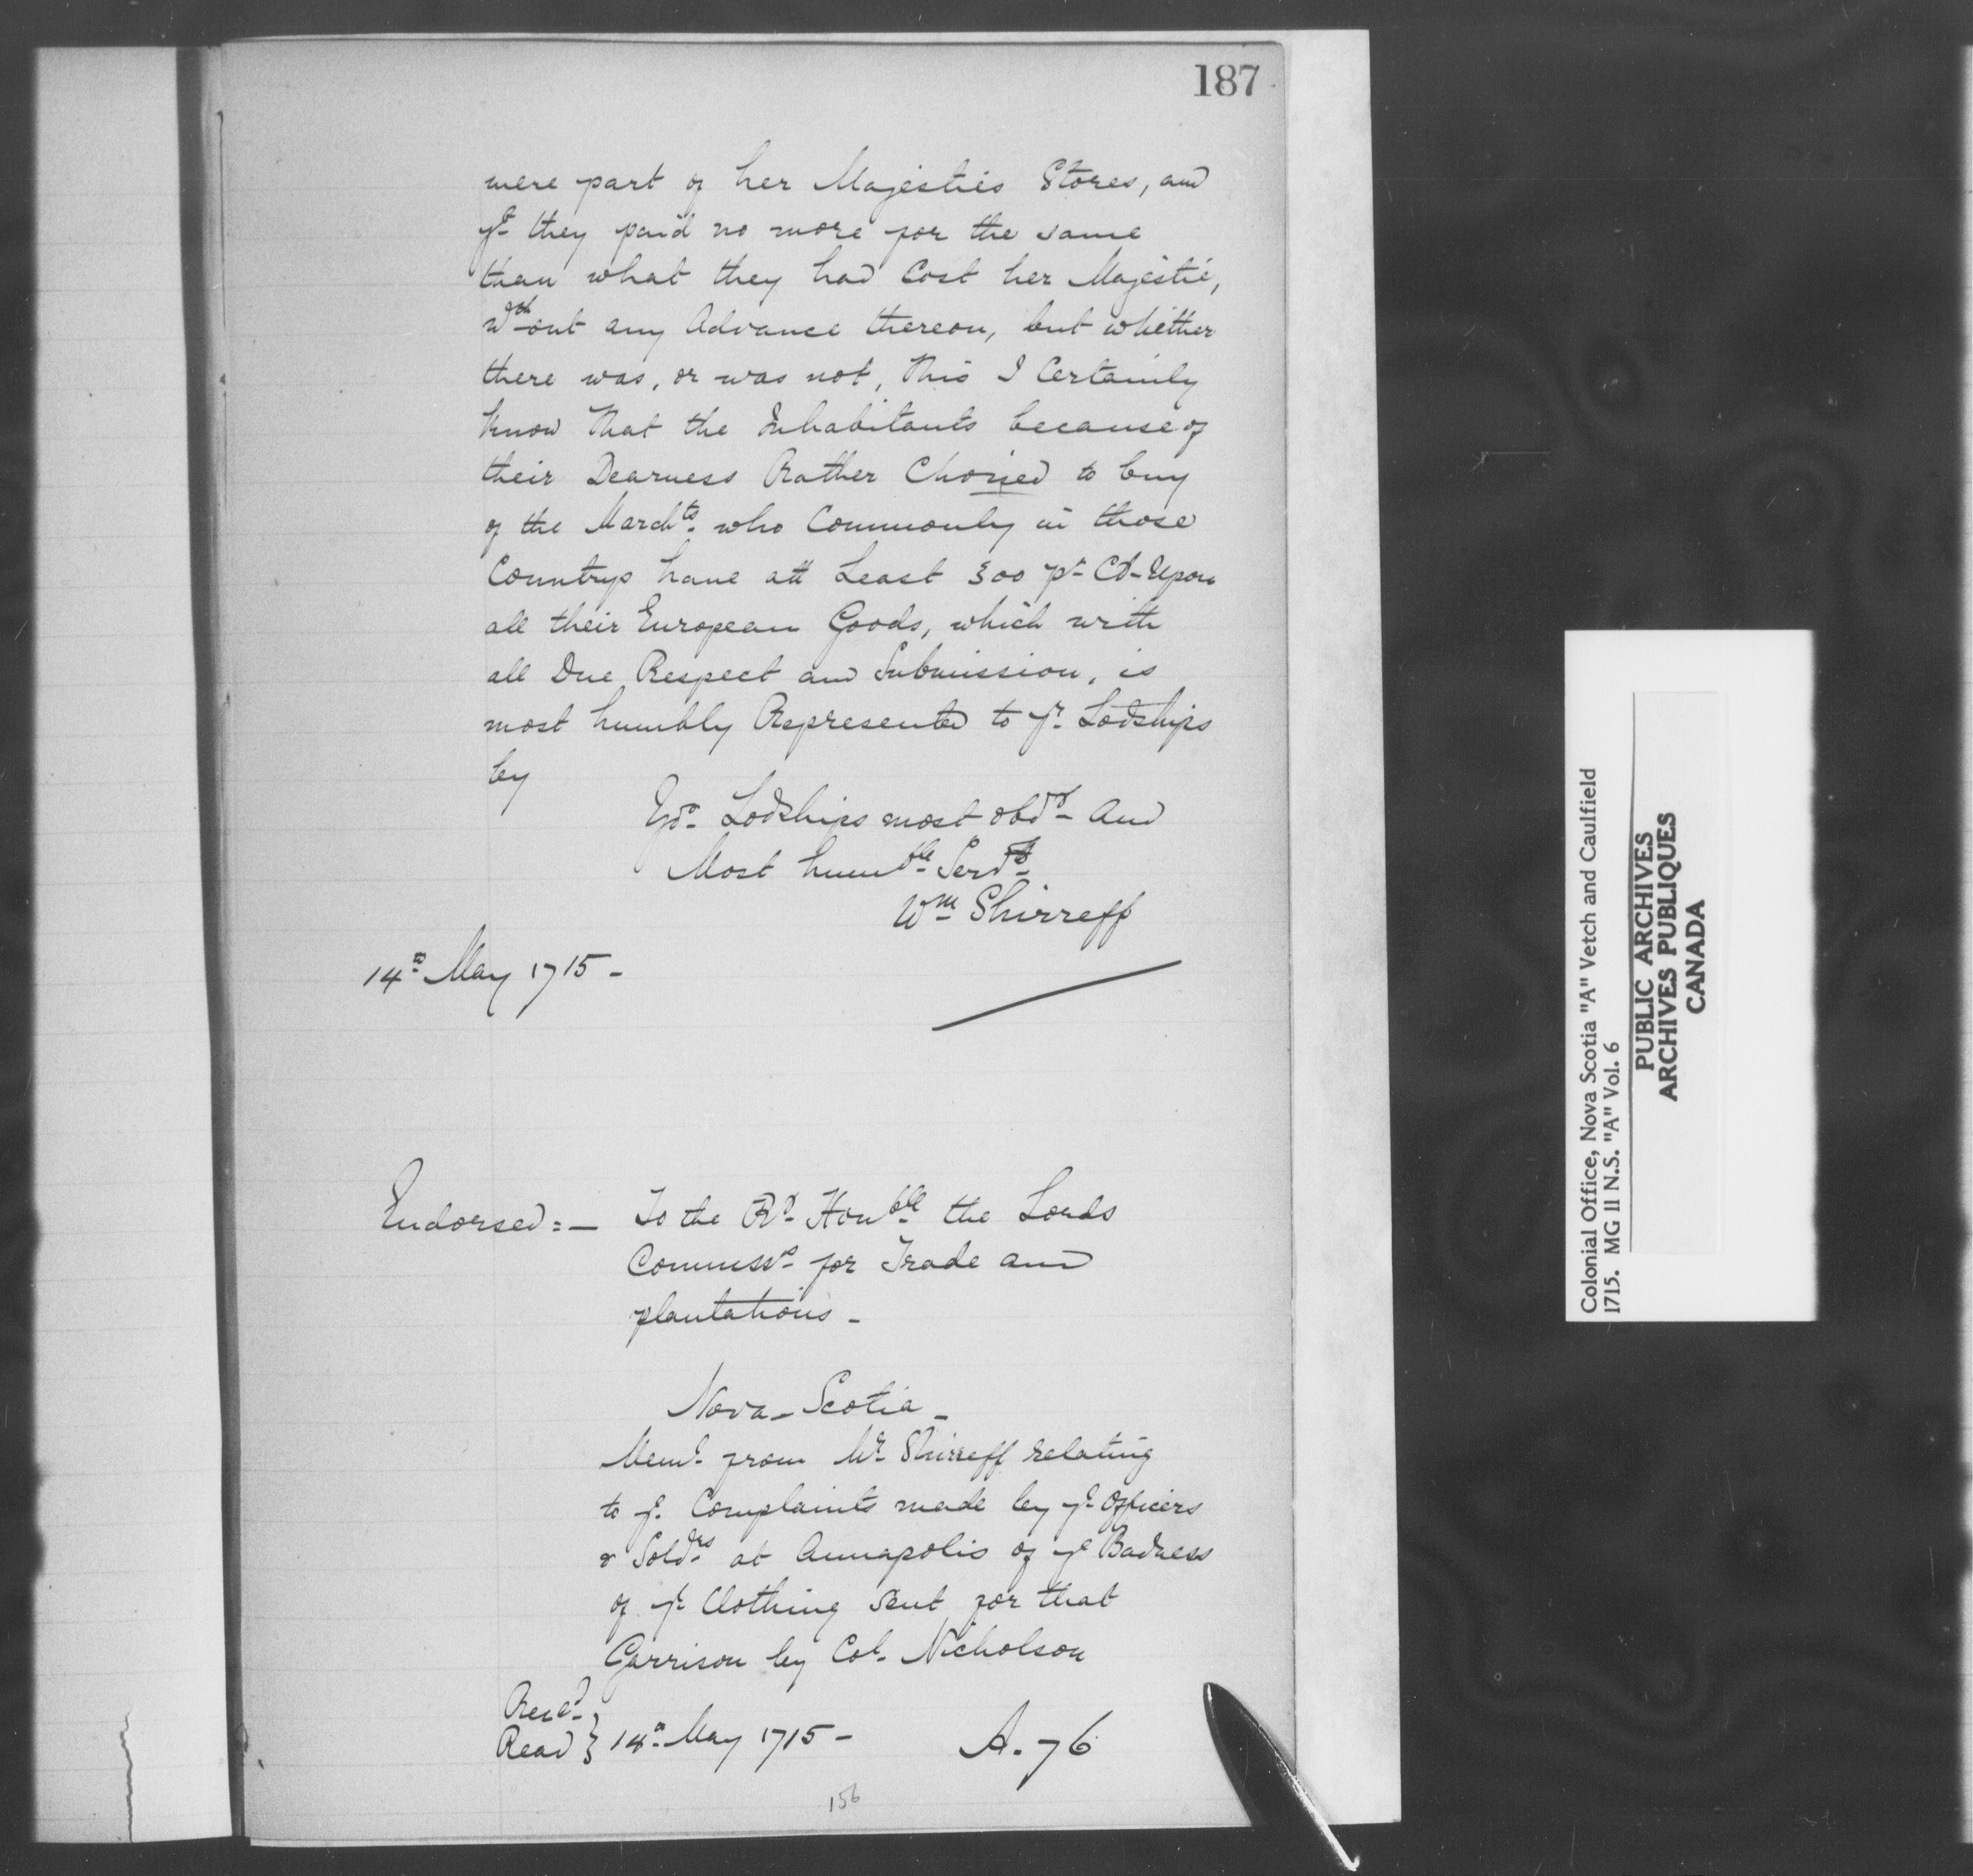 187
were part of her Majesties Stores, and
yt they paid no more for the same
than what they had Cost her Majestie,
wth-out any Advance thereon, but whether
there was, or was not, This I Certainly
know That the Inhabitants because of
their Dearness Rather Chosied to buy
of the Marchts. who Commonly in those
Countrys have att Least 300 pr Ct-Upon
all their European Goods, which with
all Due Respect and Submission, is
most humbly Represented to yr. Lodships
by
Yor Lodships most obdt and
Most humble Servt
Wm Shirreff
14th May 1715-
Endorsed:- To the Rt Honble the Lords
Commissrs for Trade and
plantations-
Nova-Scotia-
Meml from Mr Shirreff relating
to ye. Complaints made by ye Officers
& Soldrs at Annapolis of ye Badness
of ye Clothing Sent for that
Garrison by Col. Nicholson
Recd
Read } 14th May 1715- A. 76
156
Colonial Office, Nova Scotia "A" Vetch and Caulfield
1715. MG II N.S. "A" Vol. 6
PUBLIC ARCHIVES
ARCHIVES PUBLIQUES
CANADA